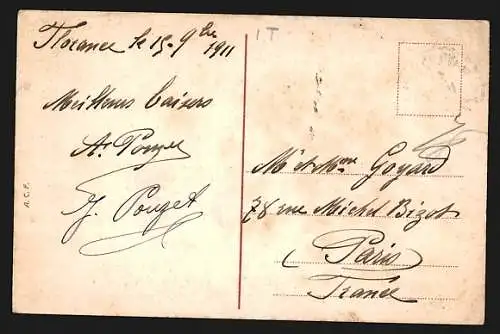 Florence le 15 9bre 1911
Meilleurs baisers
A. Pouget
J. Pouget
A.C.F.
1T
Mr et Mme Goyard
78 rue Michel Bizot
Paris
France